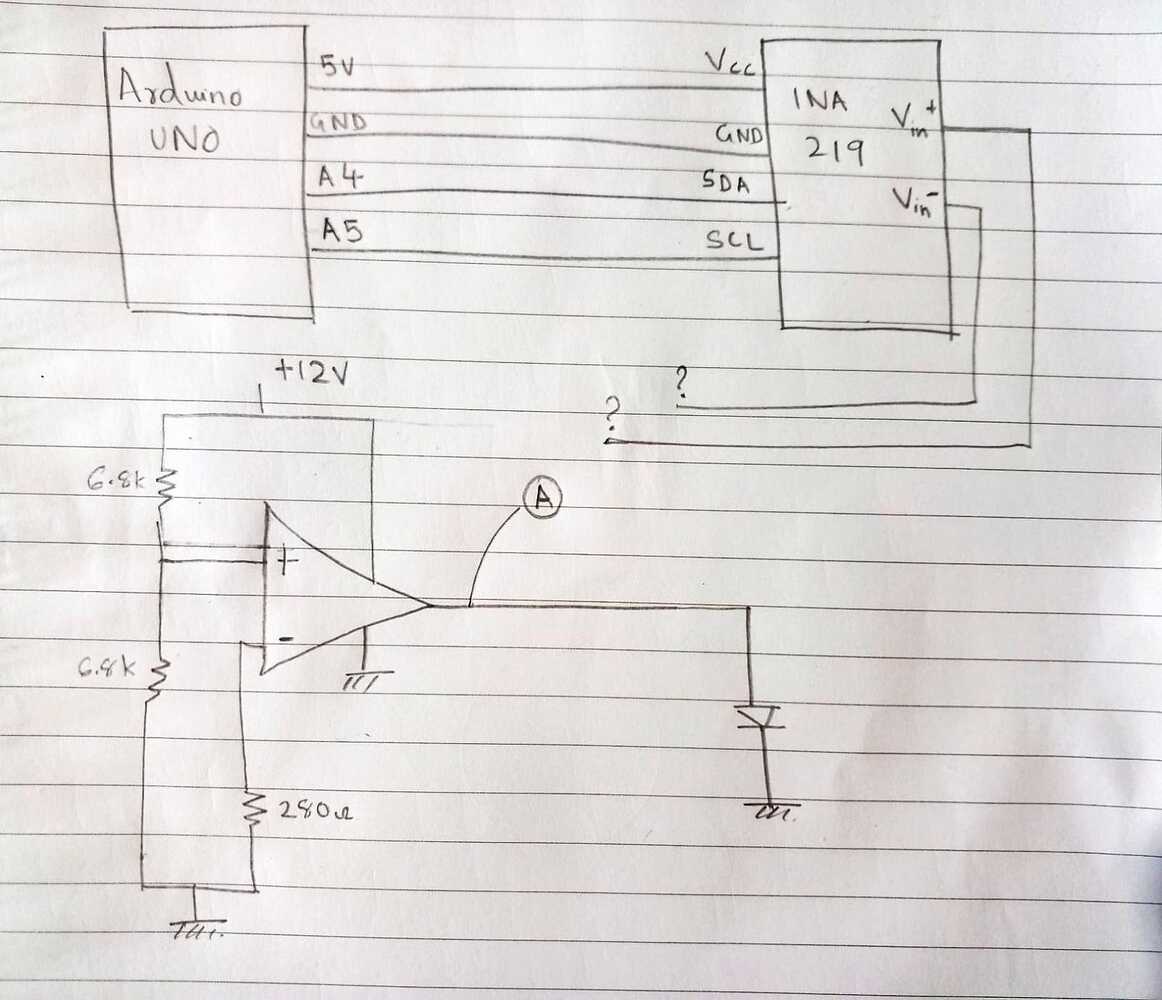 Arduino
UNO
5V
GND
A4
A5
Vcc
GND
SDA
SCL
INA
219
Vin+
Vin-
?
?
+12V
6.8k
+
-
A
6.8k
280Ω